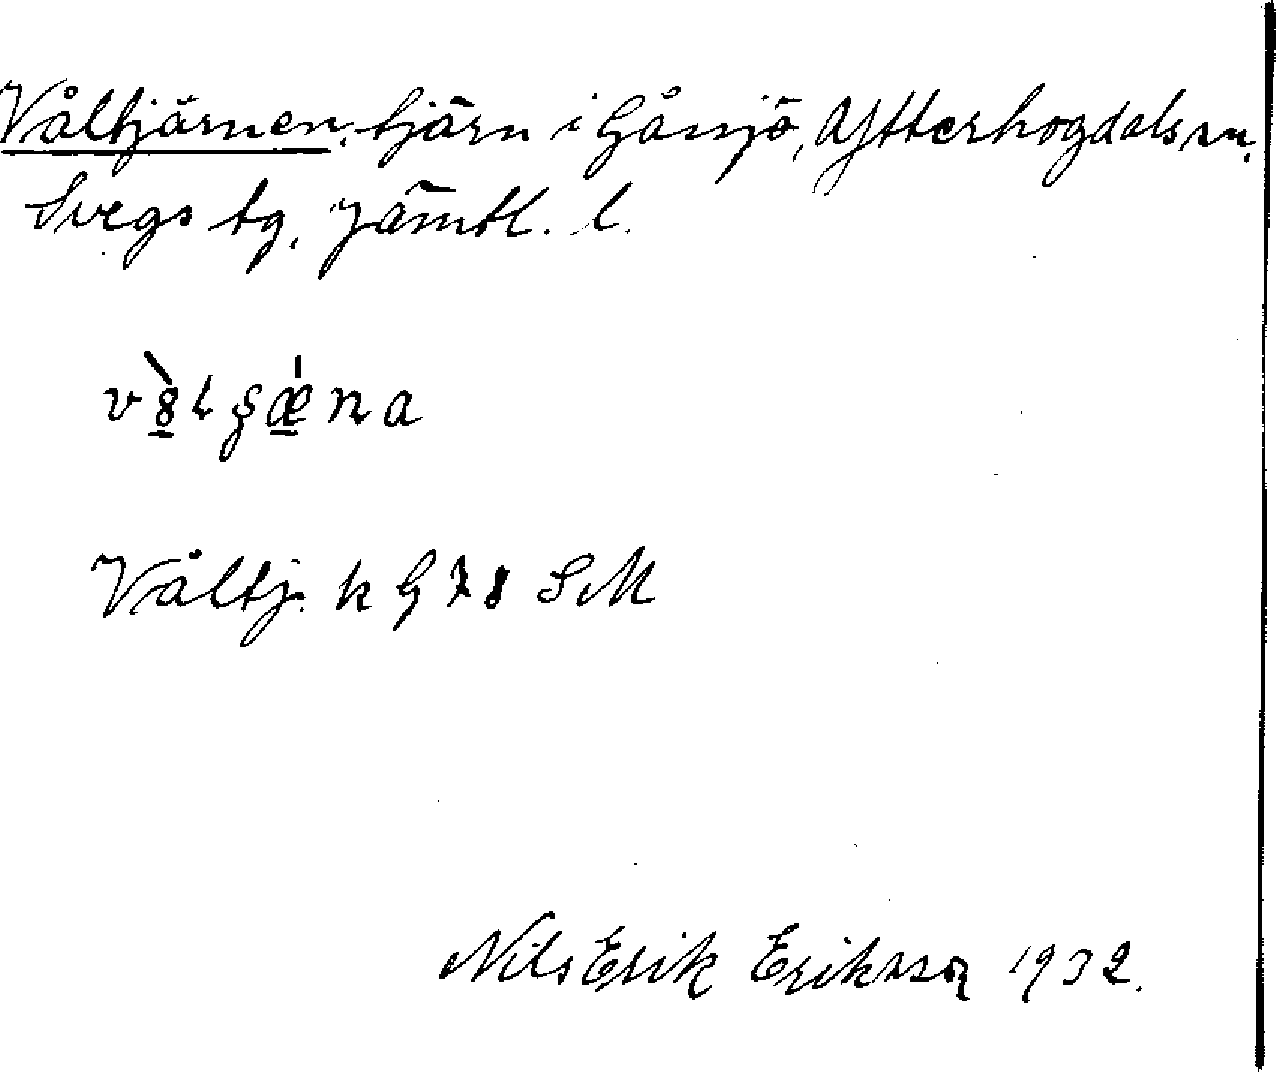 Våltjärnen, tjärn i Gåsnjö, Ytterhogdals sn.
Svegs tg. Jämtl. l.
Våltj. k G 78 SM
Nils Erik Eriksson 1932.